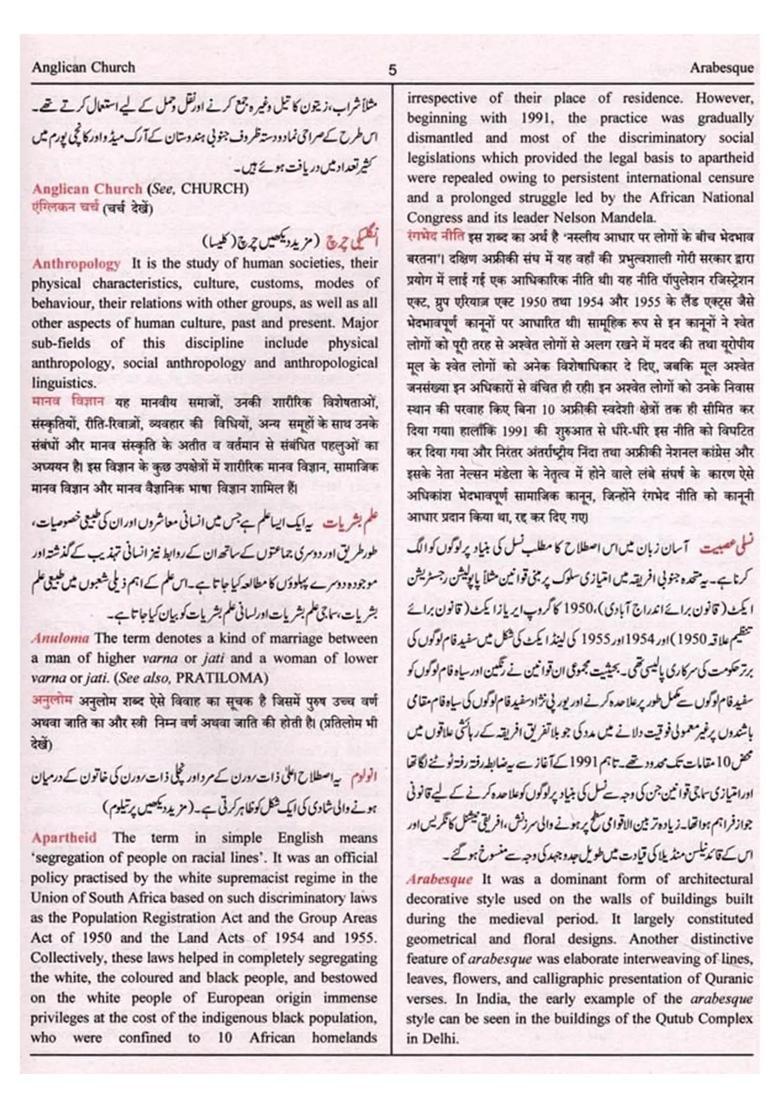 Anglican Church
5
Arabesque
مثلاً شراب، زیتون کا تیل وغیرہ جمع کرنے اور نقل وحمل کے لیے استعمال کرتے تھے۔
اس طرح کے صراحی نما دو دستہ ظروف جنوبی ہندوستان کے آرک میڈو اور کانچی پورم میں
کثیر تعداد میں دریافت ہوئے ہیں۔
Anglican Church (See, CHURCH)
एंग्लिकन चर्च (चर्च देखें)
انگلیکی چرچ (مزید دیکھیں چرچ (کلیسا)
Anthropology It is the study of human societies, their
physical characteristics, culture, customs, modes of
behaviour, their relations with other groups, as well as all
other aspects of human culture, past and present. Major
sub-fields of this discipline include physical
anthropology, social anthropology and anthropological
linguistics.
मानव विज्ञान यह मानवीय समाजों, उनकी शारीरिक विशेषताओं,
संस्कृतियों, रीति-रिवाज़ों, व्यवहार की विधियों, अन्य समूहों के साथ उनके
संबंधों और मानव संस्कृति के अतीत व वर्तमान से संबंधित पहलुओं का
अध्ययन है। इस विज्ञान के कुछ उपक्षेत्रों में शारीरिक मानव विज्ञान, सामाजिक
मानव विज्ञान और मानव वैज्ञानिक भाषा विज्ञान शामिल हैं।
علم بشریات یہ ایک ایسا علم ہے جس میں انسانی معاشروں اور ان کی طبیعی خصوصیات،
طور طریق اور دوسری جماعتوں کے ساتھ ان کے روابط نیز انسانی تہذیب کے گذشتہ اور
موجودہ دوسرے پہلوؤں کا مطالعہ کیا جاتا ہے۔ اس علم کے اہم ذیلی شعبوں میں طبیعی علم
بشریات، سماجی علم بشریات اور لسانی علم بشریات کو بیان کیا جاتا ہے۔
Anuloma The term denotes a kind of marriage between
a man of higher varna or jati and a woman of lower
varna or jati. (See also, PRATILOMA)
अनुलोम अनुलोम शब्द ऐसे विवाह का सूचक है जिसमें पुरुष उच्च वर्ण
अथवा जाति का और स्त्री निम्न वर्ण अथवा जाति की होती है। (प्रतिलोम भी
देखें)
انولوم یہ اصطلاح اعلیٰ ذات رورن کے مرد اور نچلی ذات رورن کی خاتون کے درمیان
ہونے والی شادی کی ایک شکل کو ظاہر کرتی ہے۔ (مزید دیکھیں پرتیلوم)
Apartheid The term in simple English means
‘segregation of people on racial lines’. It was an official
policy practised by the white supremacist regime in the
Union of South Africa based on such discriminatory laws
as the Population Registration Act and the Group Areas
Act of 1950 and the Land Acts of 1954 and 1955.
Collectively, these laws helped in completely segregating
the white, the coloured and black people, and bestowed
on the white people of European origin immense
privileges at the cost of the indigenous black population,
who were confined to 10 African homelands
irrespective of their place of residence. However,
beginning with 1991, the practice was gradually
dismantled and most of the discriminatory social
legislations which provided the legal basis to apartheid
were repealed owing to persistent international censure
and a prolonged struggle led by the African National
Congress and its leader Nelson Mandela.
रंगभेद नीति इस शब्द का अर्थ है ‘नस्लीय आधार पर लोगों के बीच भेदभाव
बरतना’। दक्षिण अफ्रीकी संघ में यह वहाँ की प्रभुत्वशाली गोरी सरकार द्वारा
प्रयोग में लाई गई एक आधिकारिक नीति थी। यह नीति पॉपुलेशन रजिस्ट्रेशन
एक्ट, ग्रुप एरियाज़ एक्ट 1950 तथा 1954 और 1955 के लैंड एक्ट्स जैसे
भेदभावपूर्ण कानूनों पर आधारित थी। सामूहिक रूप से इन कानूनों ने श्वेत
लोगों को पूरी तरह से अश्वेत लोगों से अलग रखने में मदद की तथा यूरोपीय
मूल के श्वेत लोगों को अनेक विशेषाधिकार दे दिए, जबकि मूल अश्वेत
जनसंख्या इन अधिकारों से वंचित ही रही। इन अश्वेत लोगों को उनके निवास
स्थान की परवाह किए बिना 10 अफ्रीकी स्वदेशी क्षेत्रों तक ही सीमित कर
दिया गया। हालाँकि 1991 की शुरुआत से धीरे-धीरे इस नीति को विघटित
कर दिया गया और निरंतर अंतर्राष्ट्रीय निंदा तथा अफ्रीकी नेशनल कांग्रेस और
इसके नेता नेल्सन मंडेला के नेतृत्व में होने वाले लंबे संघर्ष के कारण ऐसे
अधिकांश भेदभावपूर्ण सामाजिक कानून, जिन्होंने रंगभेद नीति को कानूनी
आधार प्रदान किया था, रद्द कर दिए गए।
نسلی عصبیت آسان زبان میں اس اصطلاح کا مطلب نسل کی بنیاد پر لوگوں کو الگ
کرنا ہے۔ یہ متحدہ جنوبی افریقہ میں امتیازی سلوک پر مبنی قوانین مثلاً پاپولیشن رجسٹریشن
ایکٹ (قانون برائے اندراج آبادی)، 1950 کا گروپ ایریاز ایکٹ (قانون برائے
تنظیم علاقہ 1950) اور 1954 اور 1955 کی لینڈ ایکٹ کی شکل میں سفید فام لوگوں کی
برتر حکومت کی سرکاری پالیسی تھی۔ بحیثیت مجموعی ان قوانین نے رنگین اور سیاہ فام لوگوں کو
سفید فام لوگوں سے مکمل طور پر علاحدہ کرنے اور یورپی نژاد سفید فام لوگوں کی سیاہ فام مقامی
باشندوں پر غیر معمولی فوقیت دلانے میں مدد کی جو بلا تفریق افریقہ کے رہائشی علاقوں میں
محض 10 مقامات تک محدود تھے۔ تاہم 1991 کے آغاز سے یہ ضابطہ رفتہ رفتہ ٹوٹنے لگا تھا
اور امتیازی سماجی قوانین جن کی وجہ سے نسل کی بنیاد پر لوگوں کو علاحدہ کرنے کے لیے قانونی
جواز فراہم ہوا تھا۔ زیادہ تر بین الاقوامی سطح پر ہونے والی سرزنش، افریقی نیشنل کانگریس اور
اس کے قائد نیلسن منڈیلا کی قیادت میں طویل جدوجہد کی وجہ سے منسوخ ہو گئے۔
Arabesque It was a dominant form of architectural
decorative style used on the walls of buildings built
during the medieval period. It largely constituted
geometrical and floral designs. Another distinctive
feature of arabesque was elaborate interweaving of lines,
leaves, flowers, and calligraphic presentation of Quranic
verses. In India, the early example of the arabesque
style can be seen in the buildings of the Qutub Complex
in Delhi.